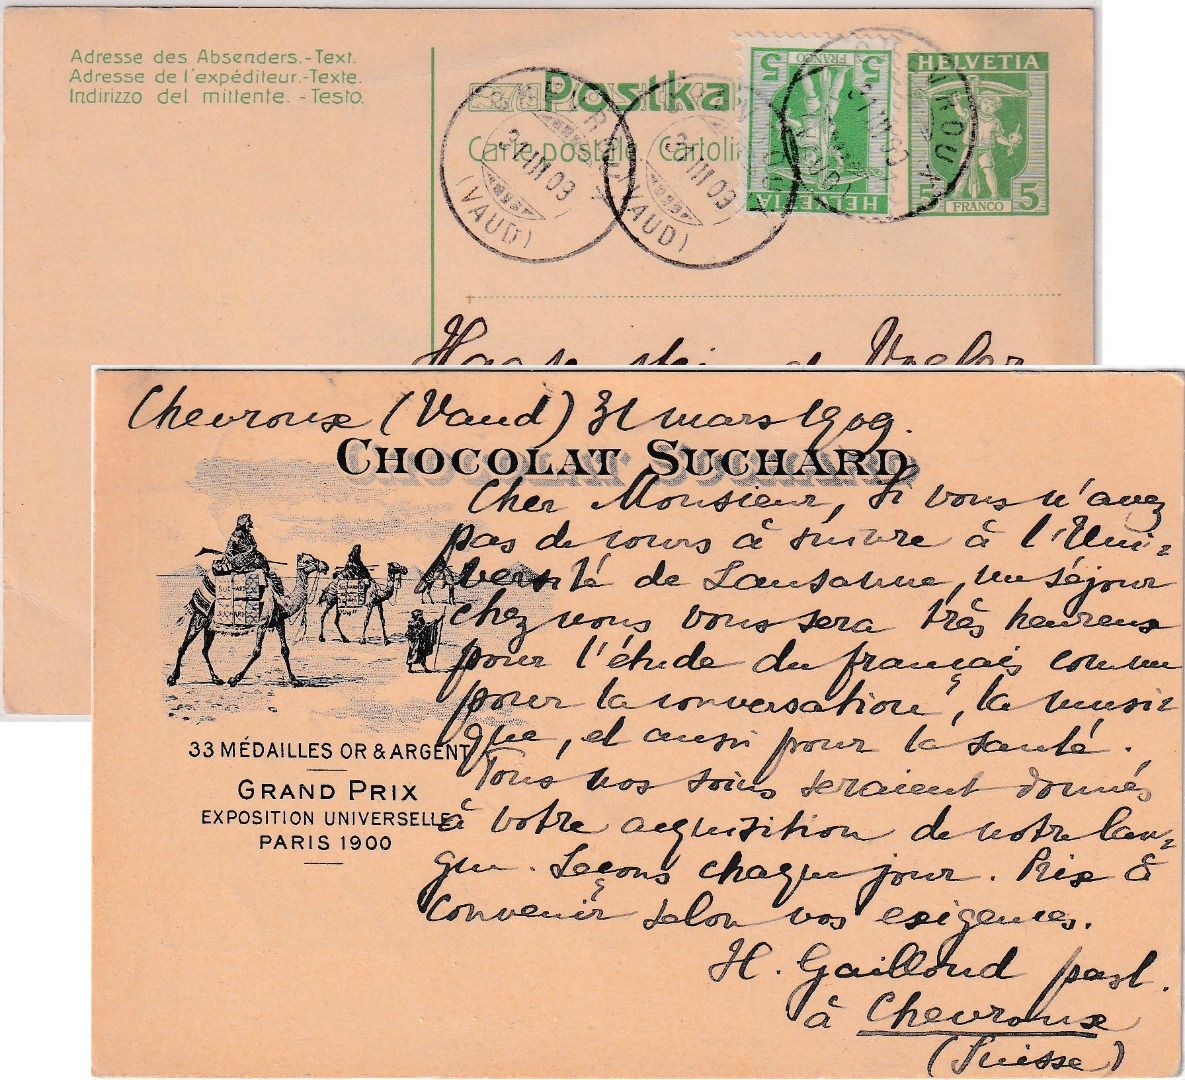 Adresse des Absenders.-Text.
Adresse de l'expéditeur.-Texte.
Indirizzo del mittente. - Testo.
Postka
Carte postale Cartolin
HELVETIA
5 FRANCO 5
HELVETIA
5 FRANCO 5
CHEVROUX
31 III 09
(VAUD)
CHEVROUX
31 III 09
(VAUD)
CHEVROUX
31 III 09
(VAUD)
Chevroux (Vaud) 31 mars 1909.
CHOCOLAT SUCHARD
Cher Monsieur, Si vous n'avez
pas de cours à suivre à l'Uni-
versité de Lausanne, un séjour
chez nous vous sera très heureux
pour l'étude du français comme
pour la conversation, la musi
que, et aussi pour la santé.
Tous nos soins seraient donnés
à votre acquisition de notre lan-
gue. Leçons chaque jour. Prix à
convenir selon vos exigences.
H. Gailloud past.
à Chevroux
(Suisse)
SUCHARD
33 MÉDAILLES OR & ARGENT
GRAND PRIX
EXPOSITION UNIVERSELLE
PARIS 1900